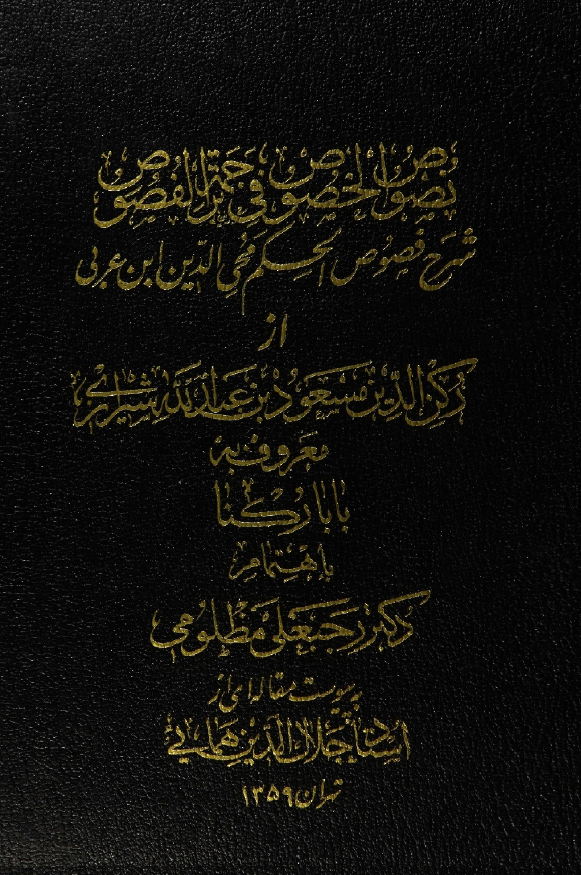 نصوص الخصوص فی ترجمة الفصوص
شرح فصوص الحکم محی الدین ابن عربی
از
رکن الدین مسعود بن عبدالله شیرازی
معروف به
بابا رکنا
باهتمام
دکتر رجبعلی مظلومی
به پیوست مقاله ای از
استاد جلال الدین همایی
تهران ۱۳۵۹